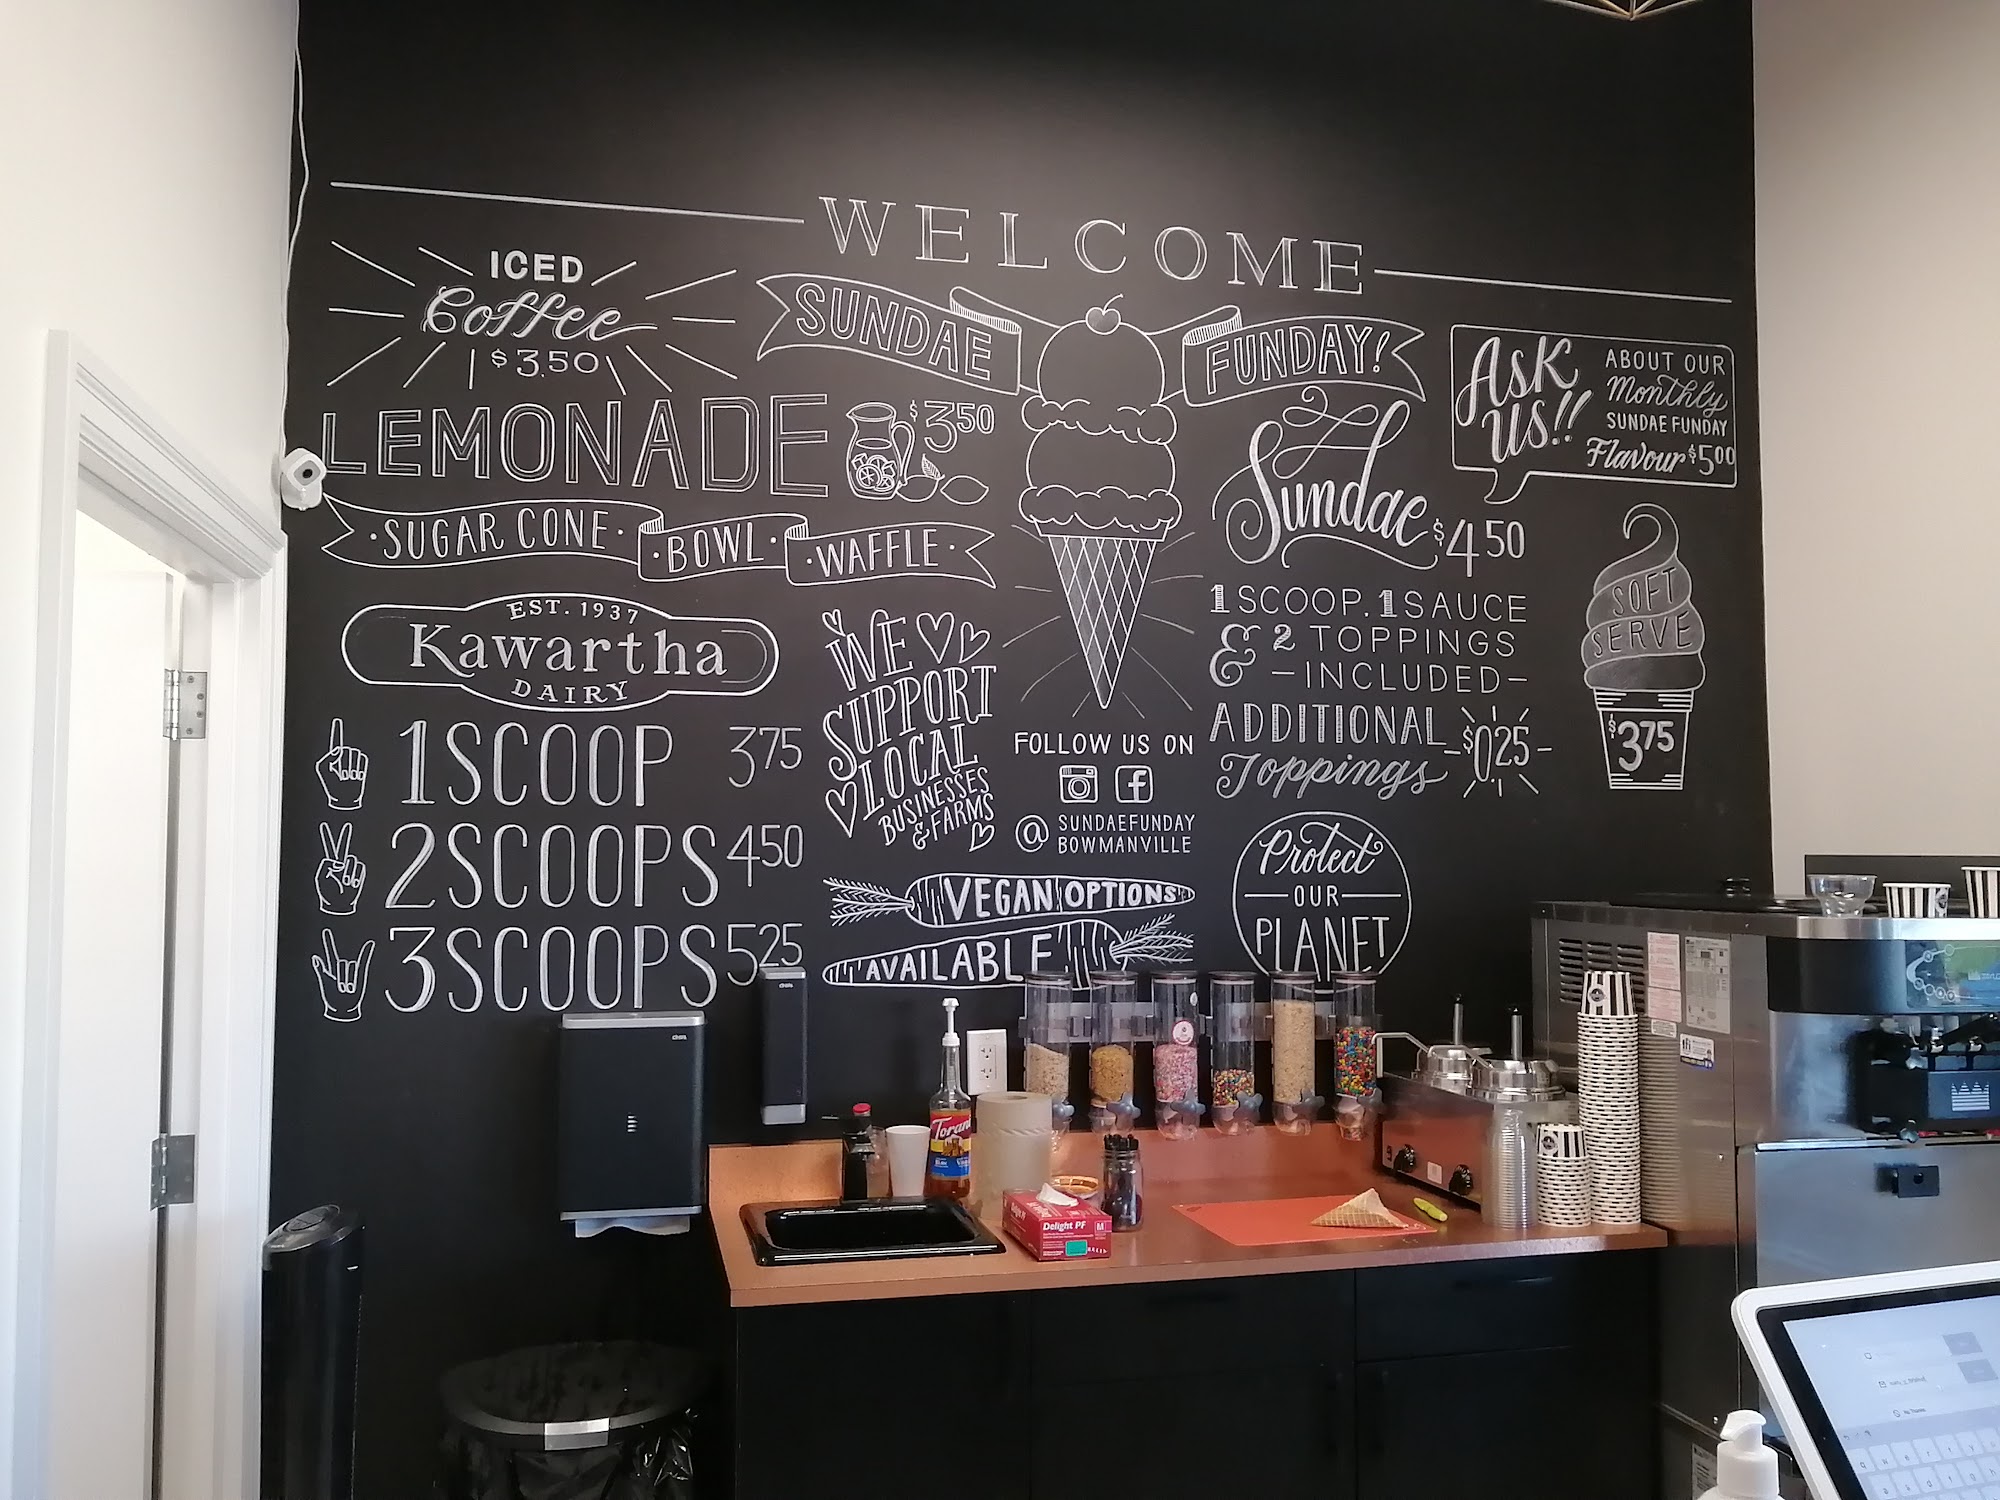 WELCOME
SUNDAE FUNDAY!
ICED
Coffee
$3.50
LEMONADE $3.50
· SUGAR CONE · BOWL · WAFFLE ·
EST. 1937
Kawartha
DAIRY
1 SCOOP 375
2 SCOOPS 450
3 SCOOPS 525
WE
SUPPORT
LOCAL
BUSINESSES
& FARMS
FOLLOW US ON
@ SUNDAEFUNDAY
BOWMANVILLE
VEGAN OPTIONS
AVAILABLE
Sundae $4.50
1 SCOOP. 1 SAUCE
& 2 TOPPINGS
-INCLUDED-
ADDITIONAL
Toppings -$0.25-
Protect
OUR
PLANET
ASK
US!!
ABOUT OUR
Monthly
SUNDAE FUNDAY
Flavour $5.00
SOFT
SERVE
$3.75
Torani
Delight PF
M